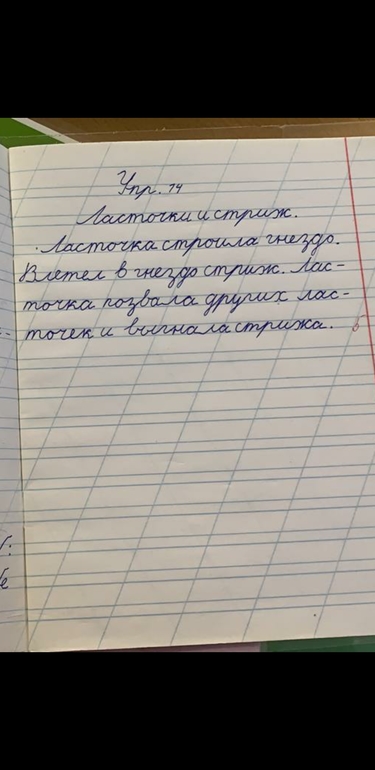 Упр. 14
Ласточки и стриж.
Ласточка строила гнездо.
Влетел в гнездо стриж. Лас-
точка позвала других лас-
точек и выгнала стрижа.